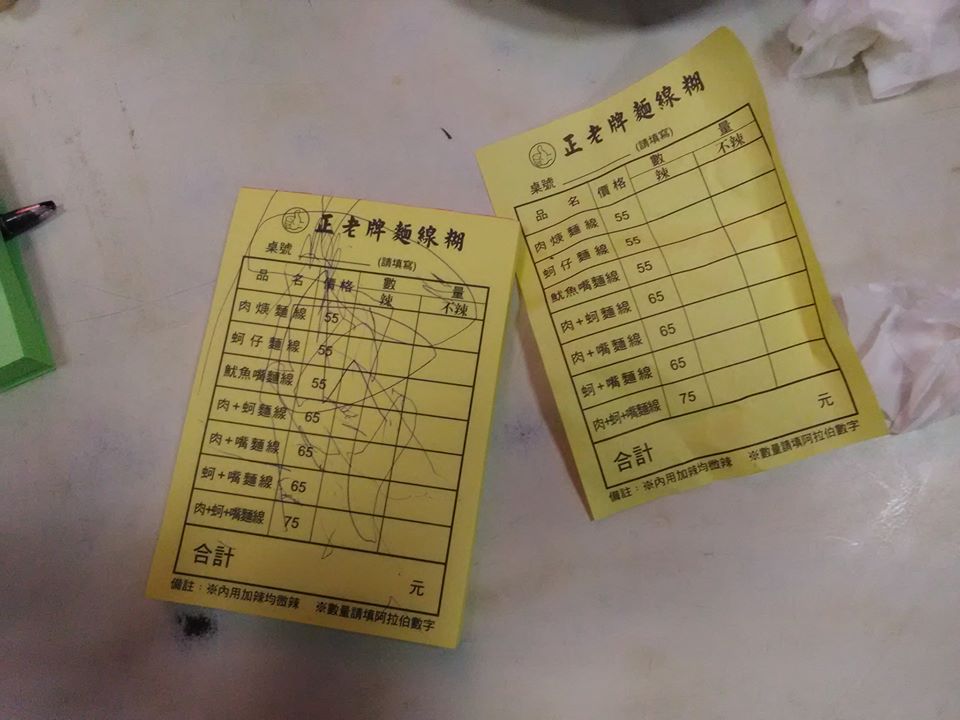 正老牌麵線糊
桌號 (請填寫)
品名 價格 數量
辣 不辣
肉焿麵線 55
蚵仔麵線 55
魷魚嘴麵線 55
肉+蚵麵線 65
肉+嘴麵線 65
蚵+嘴麵線 65
肉+蚵+嘴麵線 75
合計 元
備註：※內用加辣均微辣 ※數量請填阿拉伯數字
正老牌麵線糊
桌號 (請填寫)
品名 價格 數量
辣 不辣
肉焿麵線 55
蚵仔麵線 55
魷魚嘴麵線 55
肉+蚵麵線 65
肉+嘴麵線 65
蚵+嘴麵線 65
肉+蚵+嘴麵線 75
合計 元
備註：※內用加辣均微辣 ※數量請填阿拉伯數字